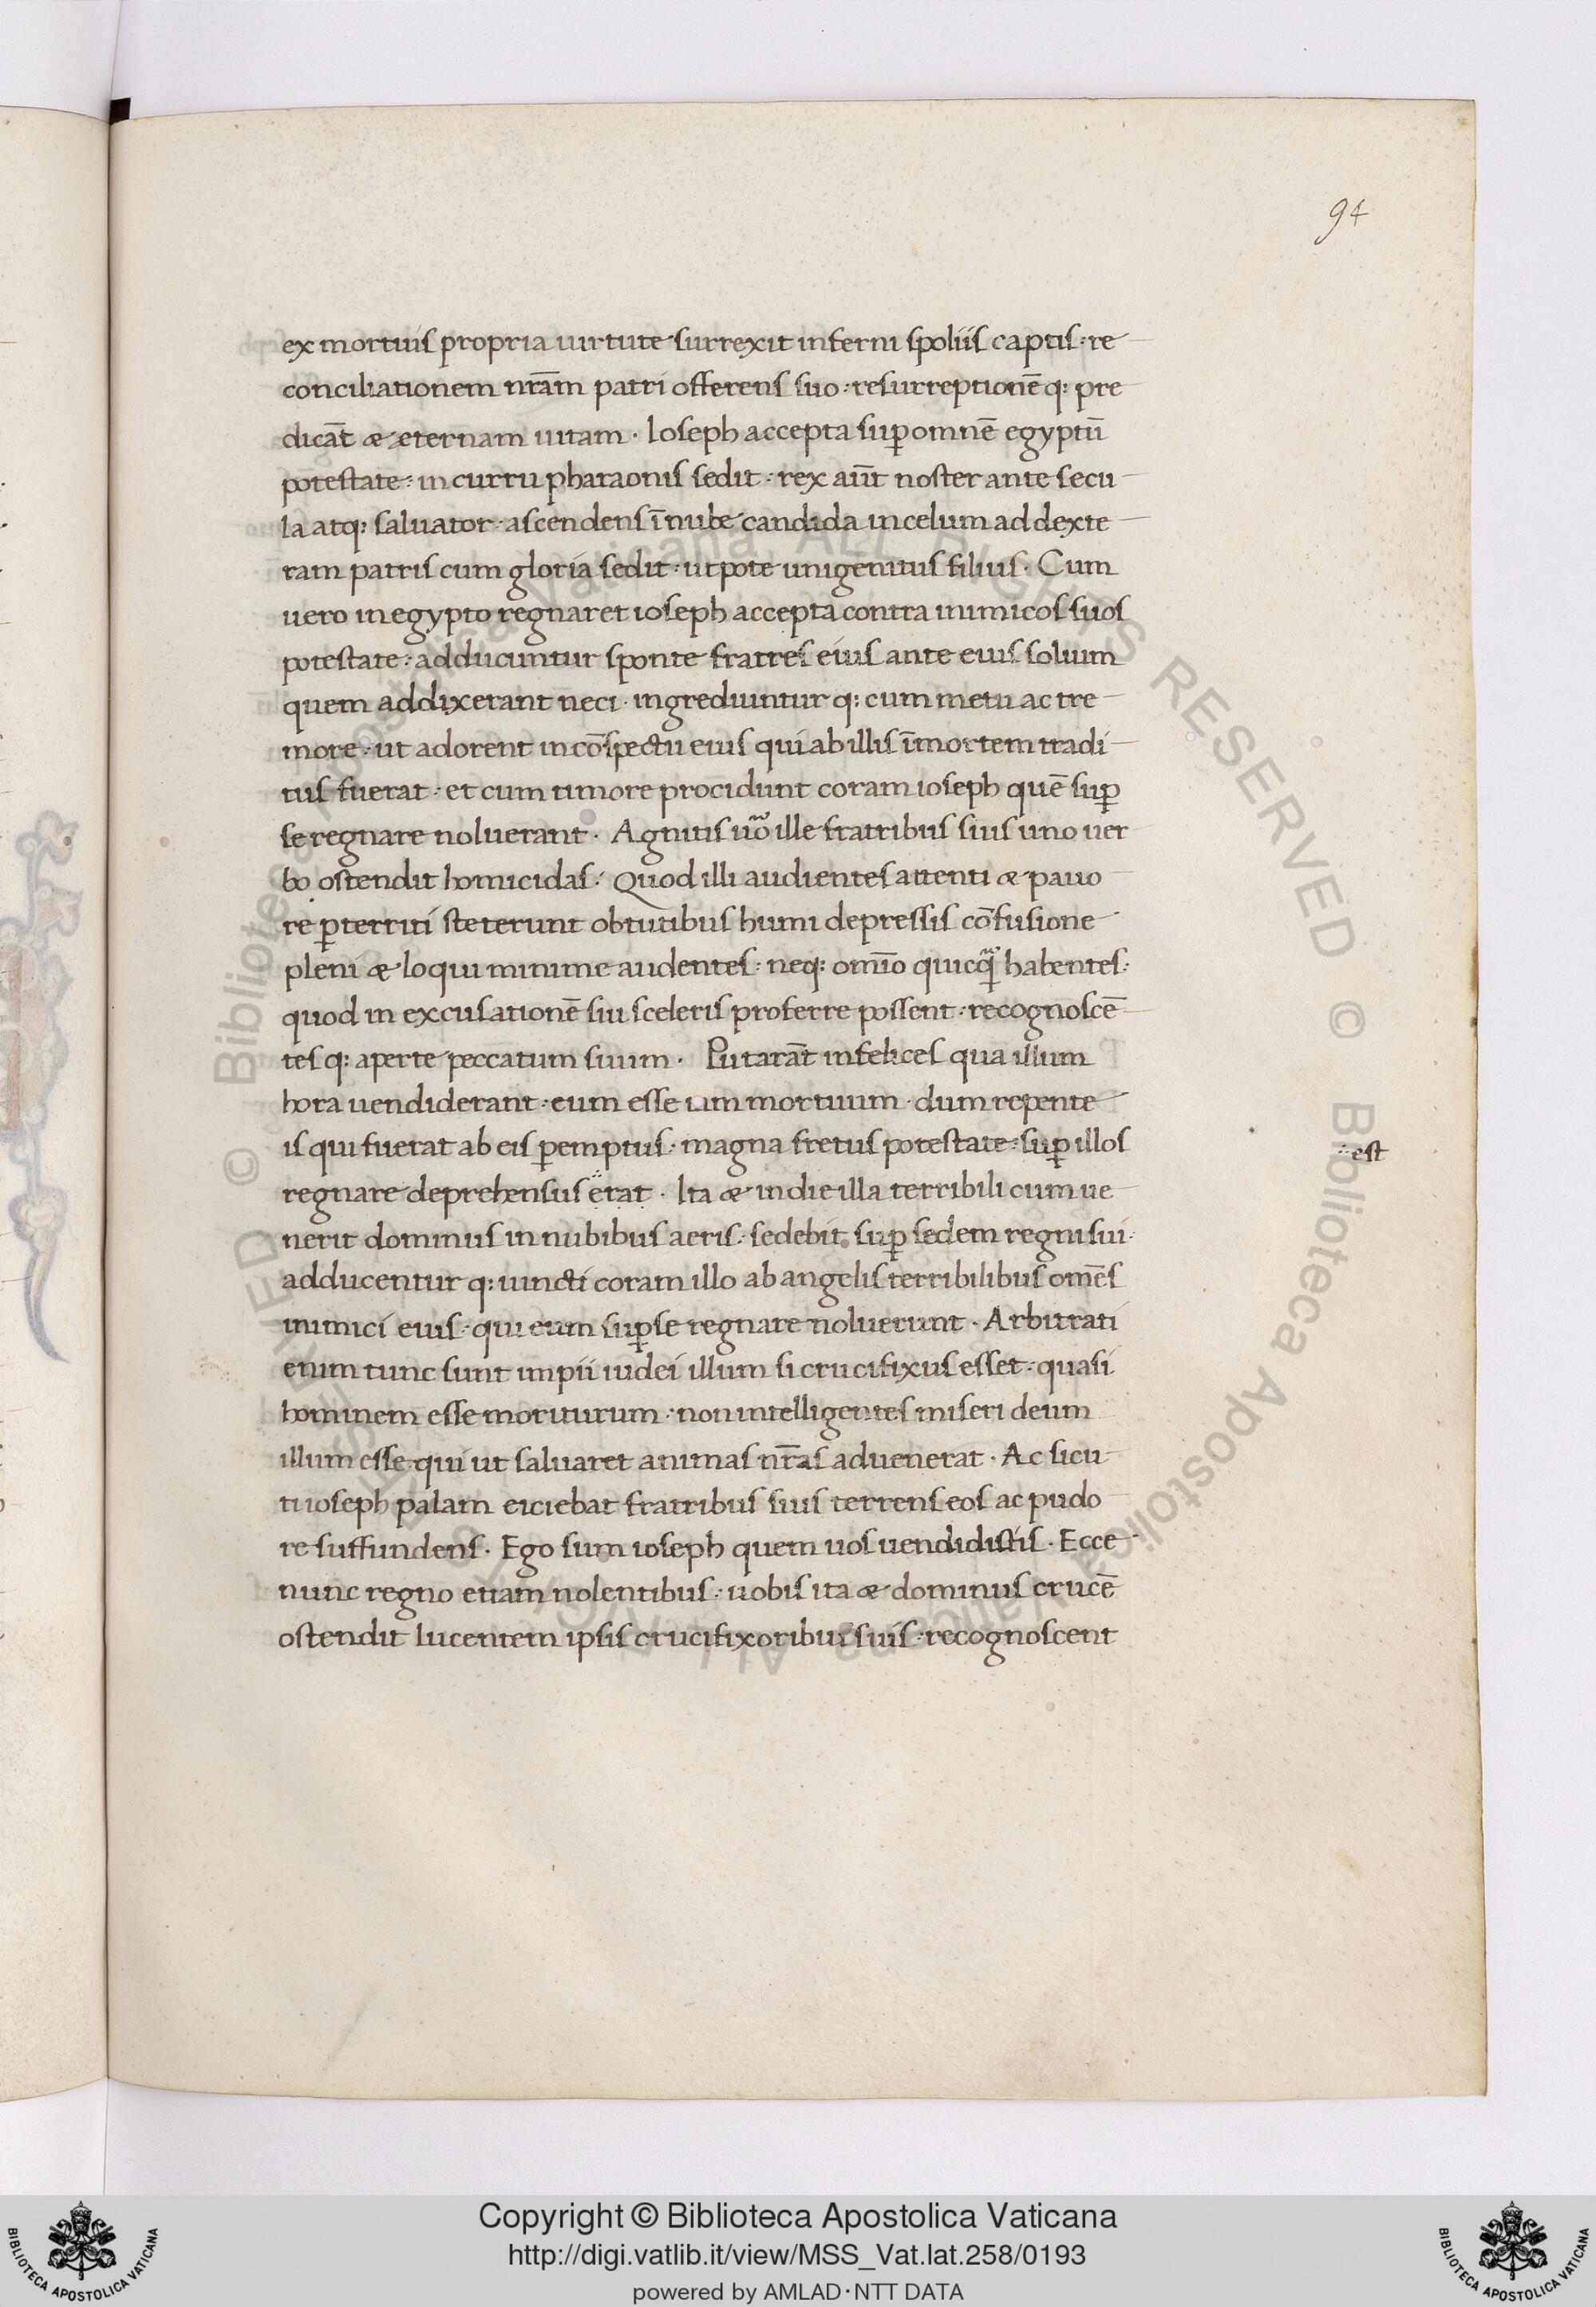 94
ex mortuis propria uirtute surrexit inferni spoliis captis: re
conciliationem nr̄am patri offerens suo: resurreptionēq: pre
dicāt & eternam uitam. Ioseph accepta sup̱ omnē egyptū
potestate: in curru pharaonis sedit: rex aūt noster ante secu
la atq: saluator ascendens ī nube candida in celum ad dexte
ram patris cum gloria sedit: utpote unigenitus filius. Cum
uero in egypto regnaret ioseph accepta contra inimicos suos
potestate: adducuntur sponte fratres eius ante eius solium
quem addixerant neci. ingrediuntur q: cum metu ac tre
more: ut adorent in cōspectu eius qui ab illis ī mortem tradi
tus fuerat: et cum timore procidunt coram ioseph quē sup̱
se regnare noluerant. Agnitis ūo ille fratribus suis uno uer
bo ostendit homicidas: Quod illi audientes attenti & pauo
re p̱territi steterunt obtutibus humi depressis cōfusione
pleni & loqui minime audentes: neq: om̄io quicq̄ habentes:
quod in excusationē sui sceleris proferre possent: recognoscē
tes q: aperte peccatum suum. Putarāt infelices qua illum
hora uendiderant: eum esse iim mortuum. dum repente
is qui fuerat ab eis p̱emptus: magna fretus potestate: sup̱ illos
∴est
regnare deprehensus erat. Ita & in die illa terribili cum ue
nerit dominus in nubibus aeris: sedebit sup̱ sedem regni sui.
adducentur q: uincti coram illo ab angelis terribilibus om̄es
inimici eius: qui eum sup̱ se regnare noluerunt. Arbitrati
enim tunc sunt impii iudei illum si crucifixus esset: quasi
hominem esse moriturum: non intelligentes miseri deum
illum esse qui ut saluaret animas nr̄as aduenerat. Ac sicu
ti ioseph palam eiciebat fratribus suis terrens eos ac pudo
re suffundens. Ego sum ioseph quem uos uendidistis. Ecce
nunc regno etiam nolentibus: uobis ita & dominus crucē
ostendit lucentem ipsis crucifixoribus suis: recognoscent
Copyright © Biblioteca Apostolica Vaticana
http://digi.vatlib.it/view/MSS_Vat.lat.258/0193
powered by AMLAD·NTT DATA